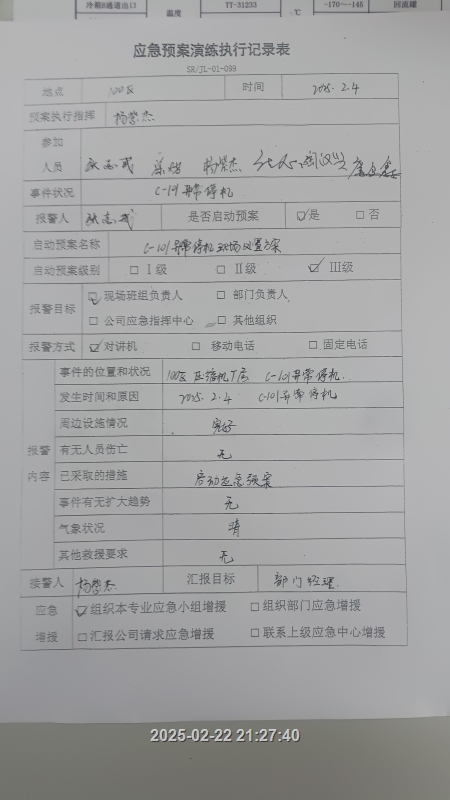 冷箱B通道出口 温度 TT-31233 ℃ -170~-145 回流罐
应急预案演练执行记录表
SR/JL-01-099
地点 100区 时间 2025.2.4
预案执行指挥 杨学杰
参加
人员 杨学杰
事件状况 C-101异常停机
报警人 是否启动预案 ☑是 □否
启动预案名称 C-101异常停机现场处置方案
启动预案级别 □Ⅰ级 □Ⅱ级 ☑Ⅲ级
报警目标 ☑现场班组负责人 □部门负责人
□公司应急指挥中心 □其他组织
报警方式 ☑对讲机 □移动电话 □固定电话
报警内容 事件的位置和状况 100区压缩机厂房 C-101异常停机.
发生时间和原因 2025.2.4 C-101异常停机
周边设施情况 完好
有无人员伤亡 无
已采取的措施 启动应急预案
事件有无扩大趋势 无
气象状况 晴
其他救援要求 无
接警人 杨学杰 汇报目标 部门经理
应急 ☑组织本专业应急小组增援 □组织部门应急增援
增援 □汇报公司请求应急增援 □联系上级应急中心增援
2025-02-22 21:27:40